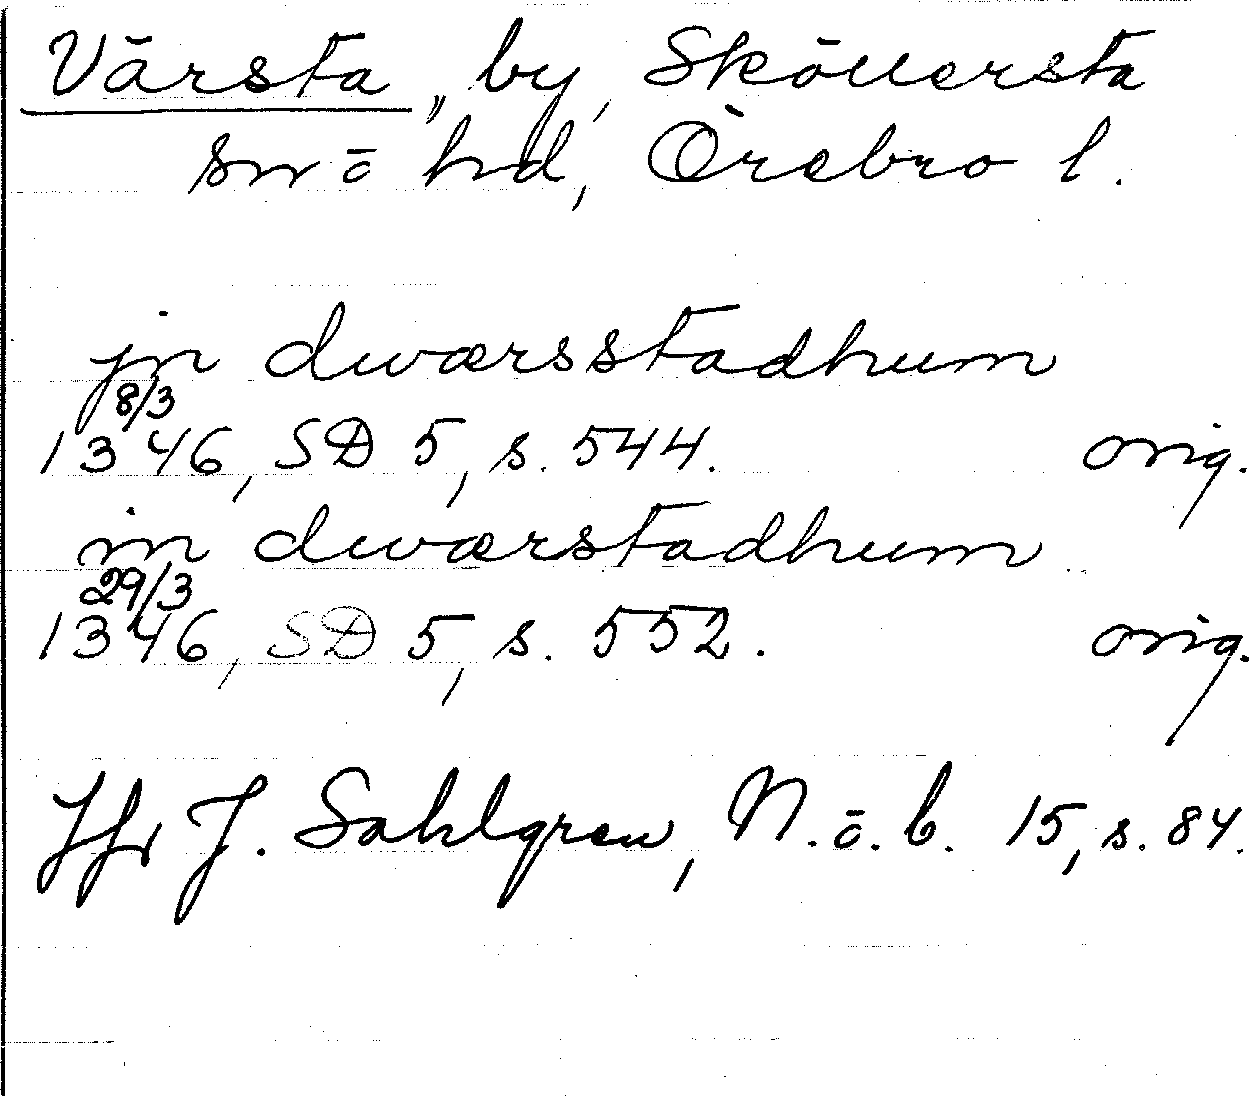 Värsta, by, Sköllersta
sn o hd, Örebro l.
jn dwærsstadhum
8/3
1346, SD 5, s. 544. orig.
in dwærstadhum
29/3
1346, SD 5, s. 552. orig.
Jfr J. Sahlgren, N. o. b. 15, s. 84.